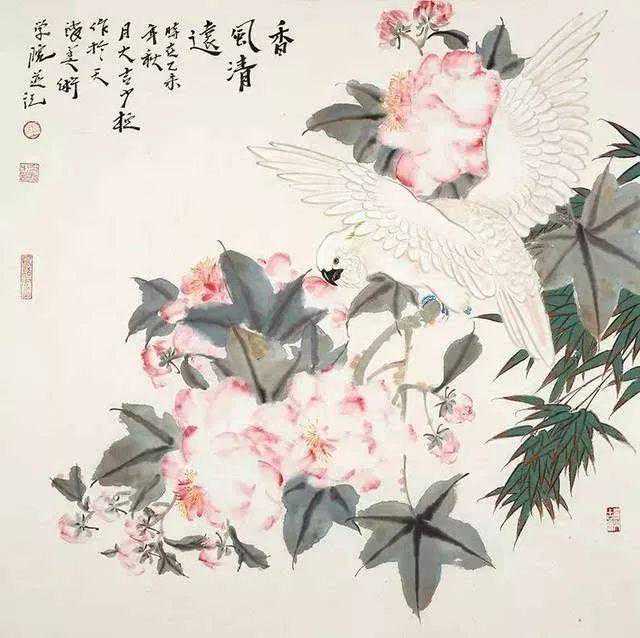 香
風清
遠
時在乙未
年秋
月大吉少
作於天
津美術
学院並记